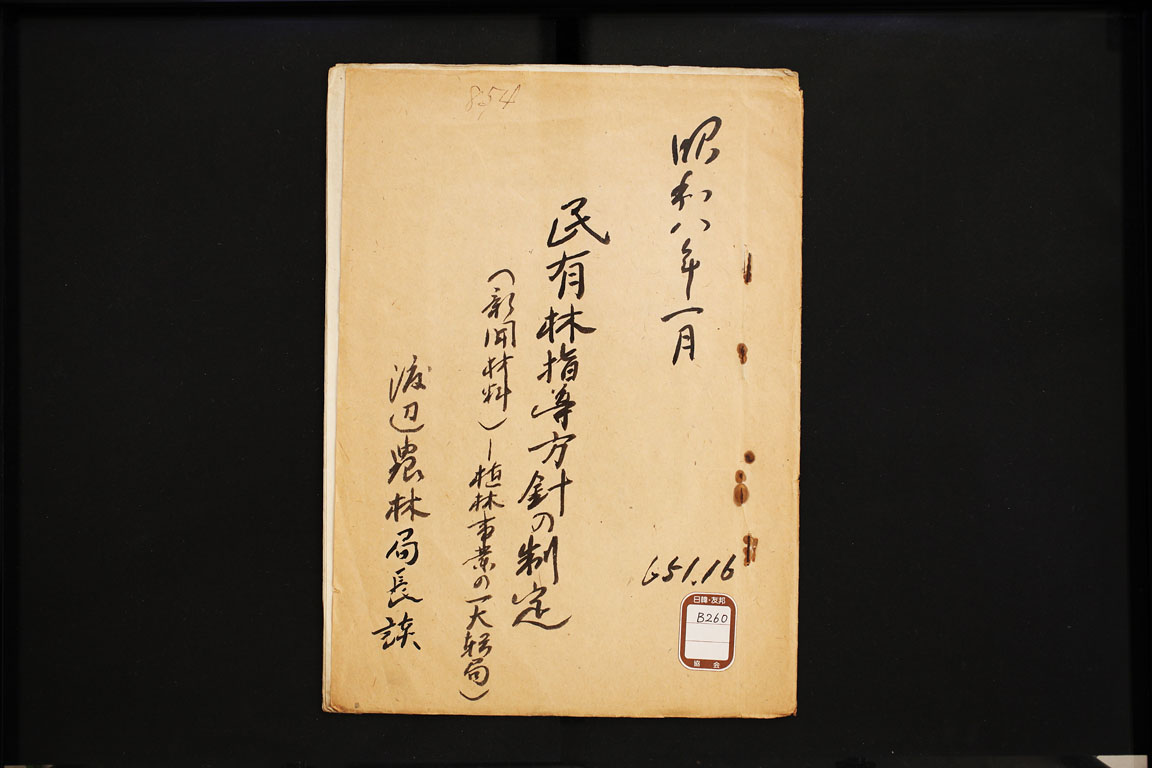 854
昭和八年一月
民有林指導方針の制定
(新聞材料)―植林事業の一大転局)
渡辺農林局長談
651.16
日韓・友邦
B260
協会